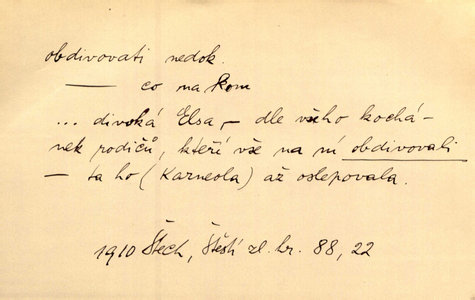 obdivovati nedok.
—— co na kom
... divoká Elsa, – dle všeho kochá-
nek rodičů, kteří vše na ní obdivovali
— ta ho (Karneola) až oslepovala.
1910 Štech, Štěstí zl. hr. 88, 22